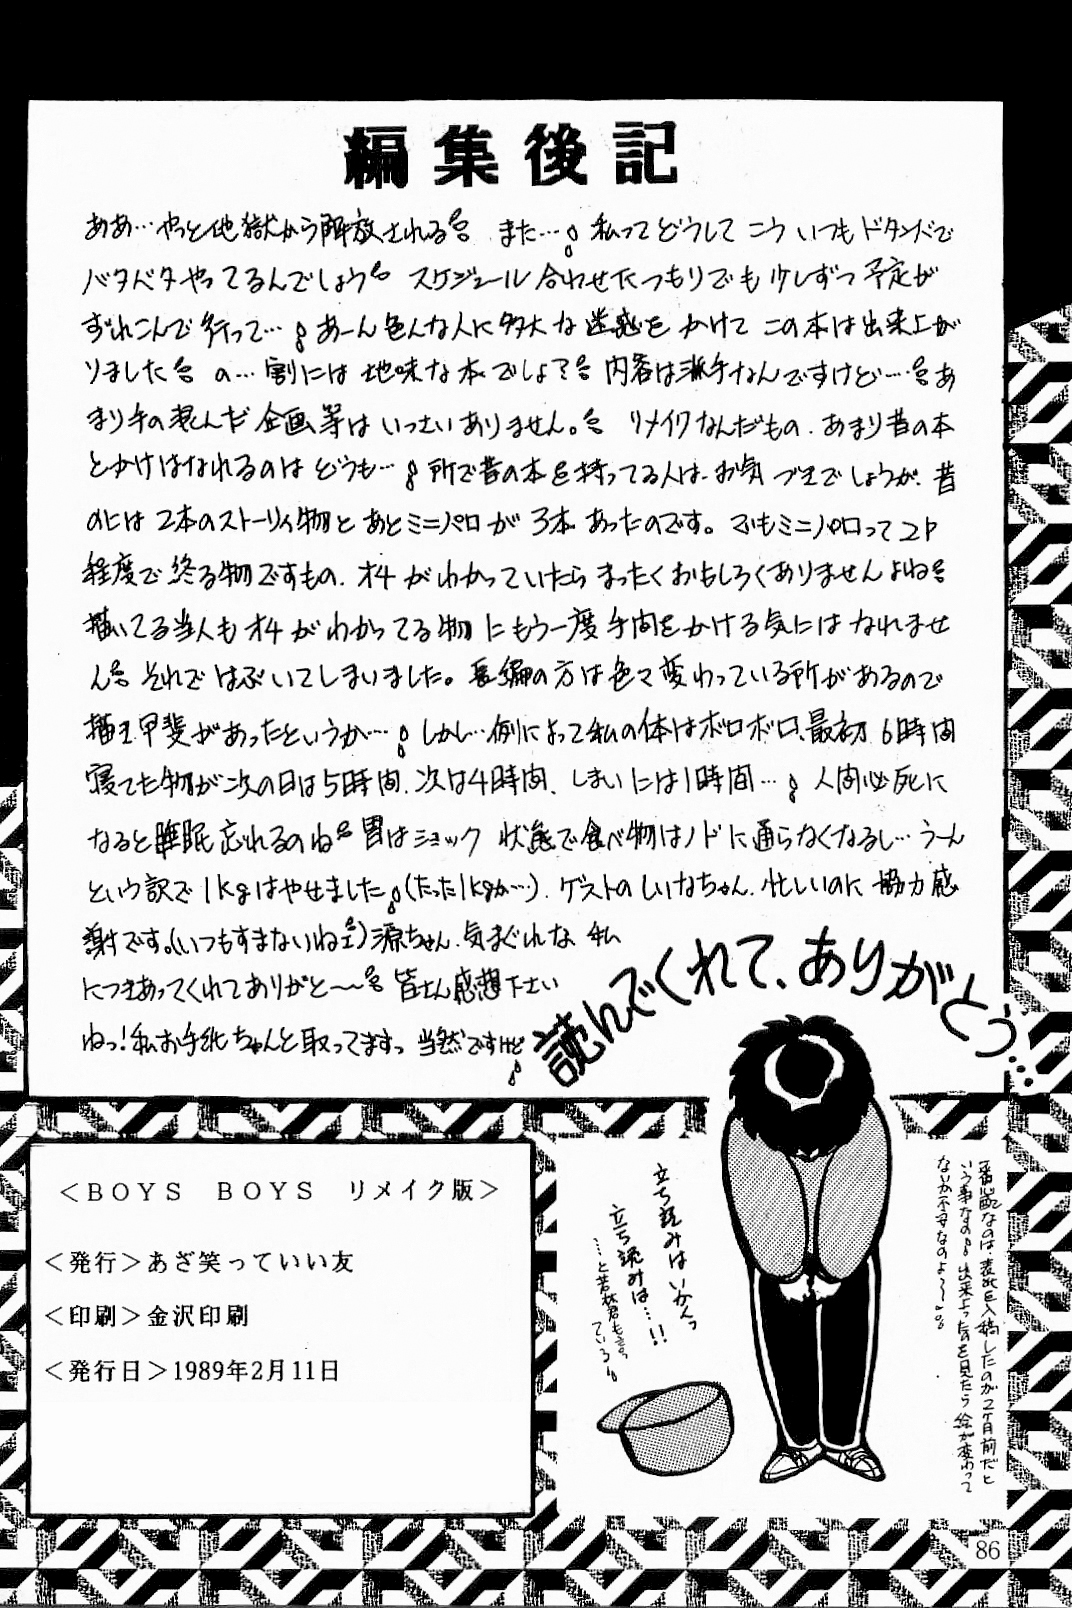 編集後記
ああ…やっと地獄から解放される。また…私ってどうしてこういつもドタンバで
バタバタやってるんでしょう。スケジュール合わせたつもりでも少しずつ予定が
ずれこんで行って…あーん色んな人に多大な迷惑をかけてこの本は出来上が
りました。の…割には地味な本でしょ?内容は派手なんですけど…あ
まり手の混んだ企画等はいっさいありません。リメイクなんだもの、あまり昔の本
とかけはなれるのはどうも…所で昔の本を持ってる人は、お気づきでしょうが、昔
のには2本のストーリィ物とあとミニパロが3本あったのです。でもミニパロって2P
程度で終る物ですもの、オチがわかっていたらまったくおもしろくありませんよね。
描いてる当人もオチがわかってる物にもう一度手間をかける気にはなれませ
ん。それではぶいてしまいました。長編の方は色々変わっている所があるので
描き甲斐があったというか…しかし…例によって私の体はボロボロ、最初6時間
寝てた物が次の日は5時間、次は4時間、しまいには1時間…人間必死に
なると睡眠忘れるのね。胃はショック状態で食べ物はノドに通らなくなるし…うーん
という訳で1kgはやせました(たった1kgか…)。ゲストのしいなちゃん、忙しいのに協力感
謝です。(いつもすまないねェ)源ちゃん、気まぐれな私
につきあってくれてありがと〜〜皆さん感想下さい
ねっ!私お手紙ちゃんと取ってますっ当然ですけど
読んでくれて、ありがとう…
<BOYS BOYS リメイク版>
<発行>あざ笑っていい友
<印刷>金沢印刷
<発行日>1989年2月11日
立ち読みはいかんっ
立ち読みは…!!
…と若林君も言っ
ている
一番心配なのは、表紙を入稿したのが2ヶ月前だと
いう事なの。出来上ったのを見たら絵が変わって
ないか不安なのよ〜
86